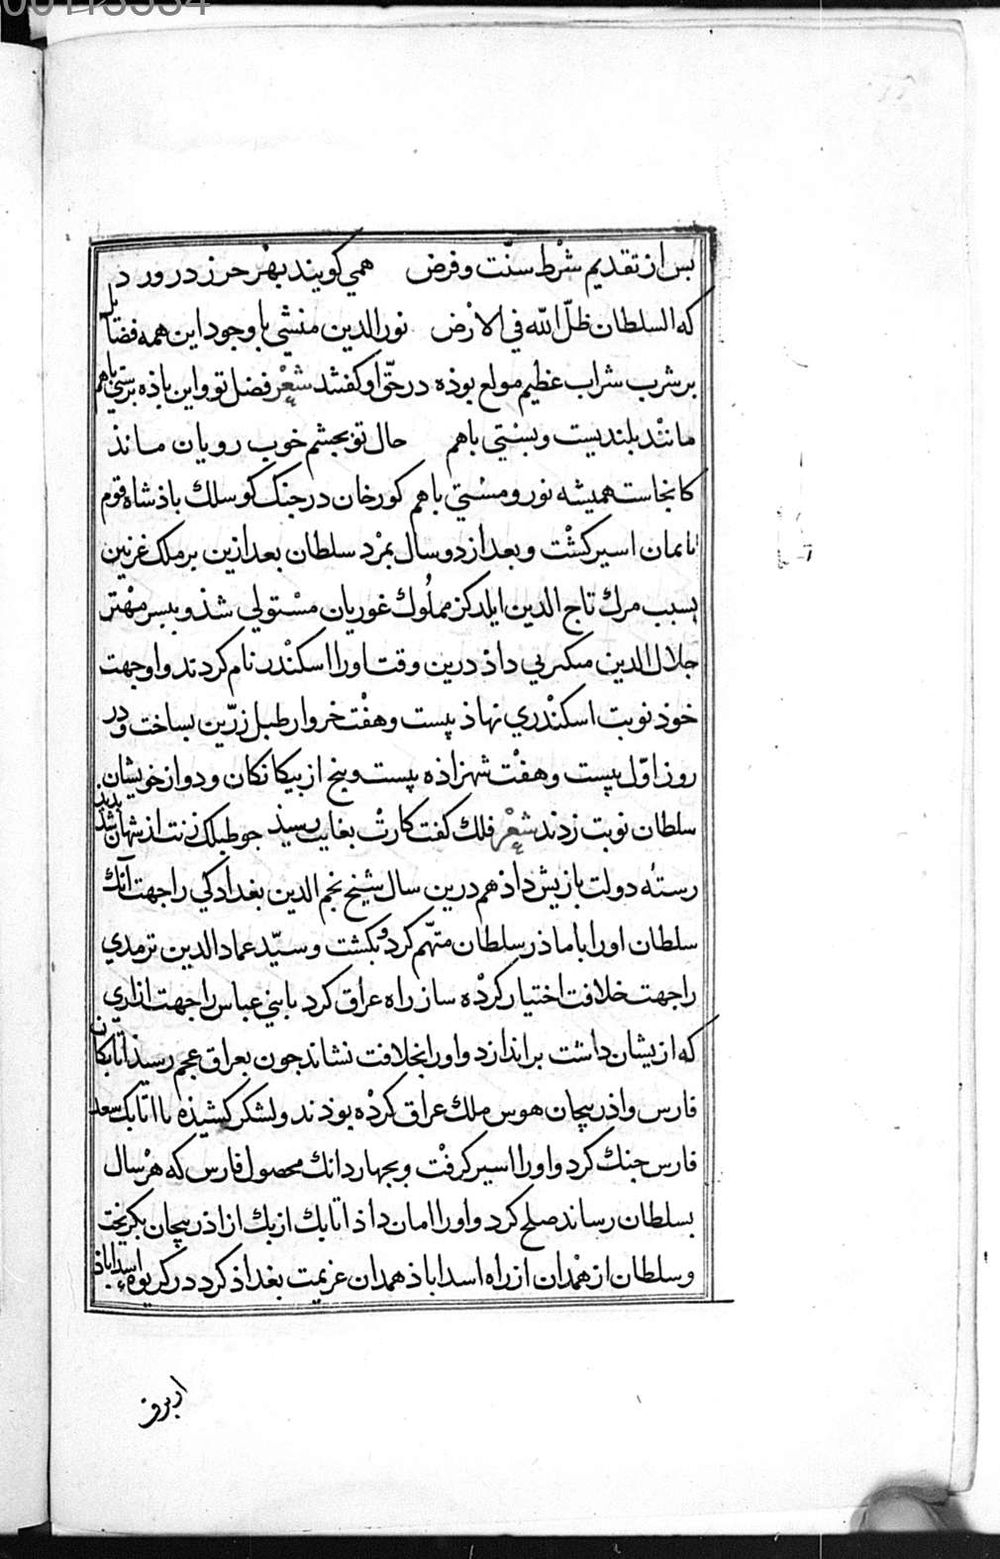 00113334
بس از تقدیم شرط سنّت و فرض همی کویند بهر حرز در ورد
که السلطان ظلّ الله فی الارض نور الدین منشی با وجود این همه فضایل
بر شرب شراب عظیم مولع بوذه در حقّ او کفتند شعر فضل تو و این باذه برستی باهم
مانند بلندیست و بستی باهم حال تو بجشم خوب رویان ماند
کانجاست همیشه نور و مستی باهم کورخان در جنک کوسلک باذشاه قوم
نایمان اسیر کشت و بعد از دو سال بمرد سلطان بعد ازین بر ملک غزنین
بسبب مرک تاج الدین ایلدکز مملوک غوریان مستولی شذ و ببسر مهتر
جلال الدین منکبرنی داذ درین وقت اورا اسکندر نام کردند و او جهت
خوذ نوبت اسکندری نهاذ بیست و هفت خروار طبل زرّین بساخت و در
روز اوّل بیست و هفت شهزاذه بیست و بنج از بیکانکان و دو از خویشان
سلطان نوبت زدند شعر فلک کفت کارت بغایت رسید جو طبلک زنت از شهان شذ بدید
رسته دولت باز بش داذ هم درین سال شیخ نجم الدین بغدادکی را جهت آنک
سلطان اورا با ماذر سلطان متهّم کرد و بکشت و سیّد عماد الدین ترمدی
را جهت خلافت اختیار کرده ساز راه عراق کرد تا بنی عباس را جهت ازاری
که ازیشان داشت براندازد و اورا بخلافت نشاند جون بعراق عجم رسیذ اتابکان
فارس و اذربیجان هوس ملک عراق کرده بوذند و لشکر کشیذه با اتابک سعد
فارس جنک کرد و اورا اسیر کرفت و بجهار دانک محصول فارس که هر سال
بسلطان رساند صلح کرد و اورا امان داذ اتابک ازبک از اذربیجان بکریخت
و سلطان از همدان از راه اسداباذ همدان عزیمت بغداذ کرد در کریوه اسداباذ
از برف